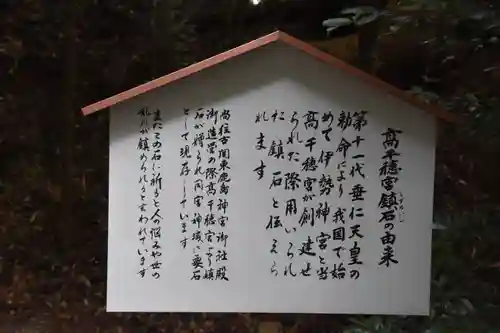 高千穂宮鎮石の由来
第十一代 垂仁天皇の
勅命により 我国で始
めて伊勢神宮と当
高千穂宮が創建せ
られた際用いられ
た鎮石と伝えら
れます
尚往古関東鹿島神宮御社殿
御造営の際高千穂宮より鎮
石が贈られ同宮神域に要石
として現存しています
またこの石に祈ると人の悩みや世の
乱れが鎮められると言われています